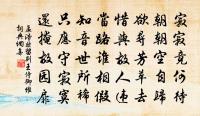 寂寂竟何待
朝朝空自歸
欲尋芳草去
惜與故人違
當路誰相假
知音世所稀
只應守寂寞
還掩故園扉
孟浩然詩留別王侍御維
詞典網集